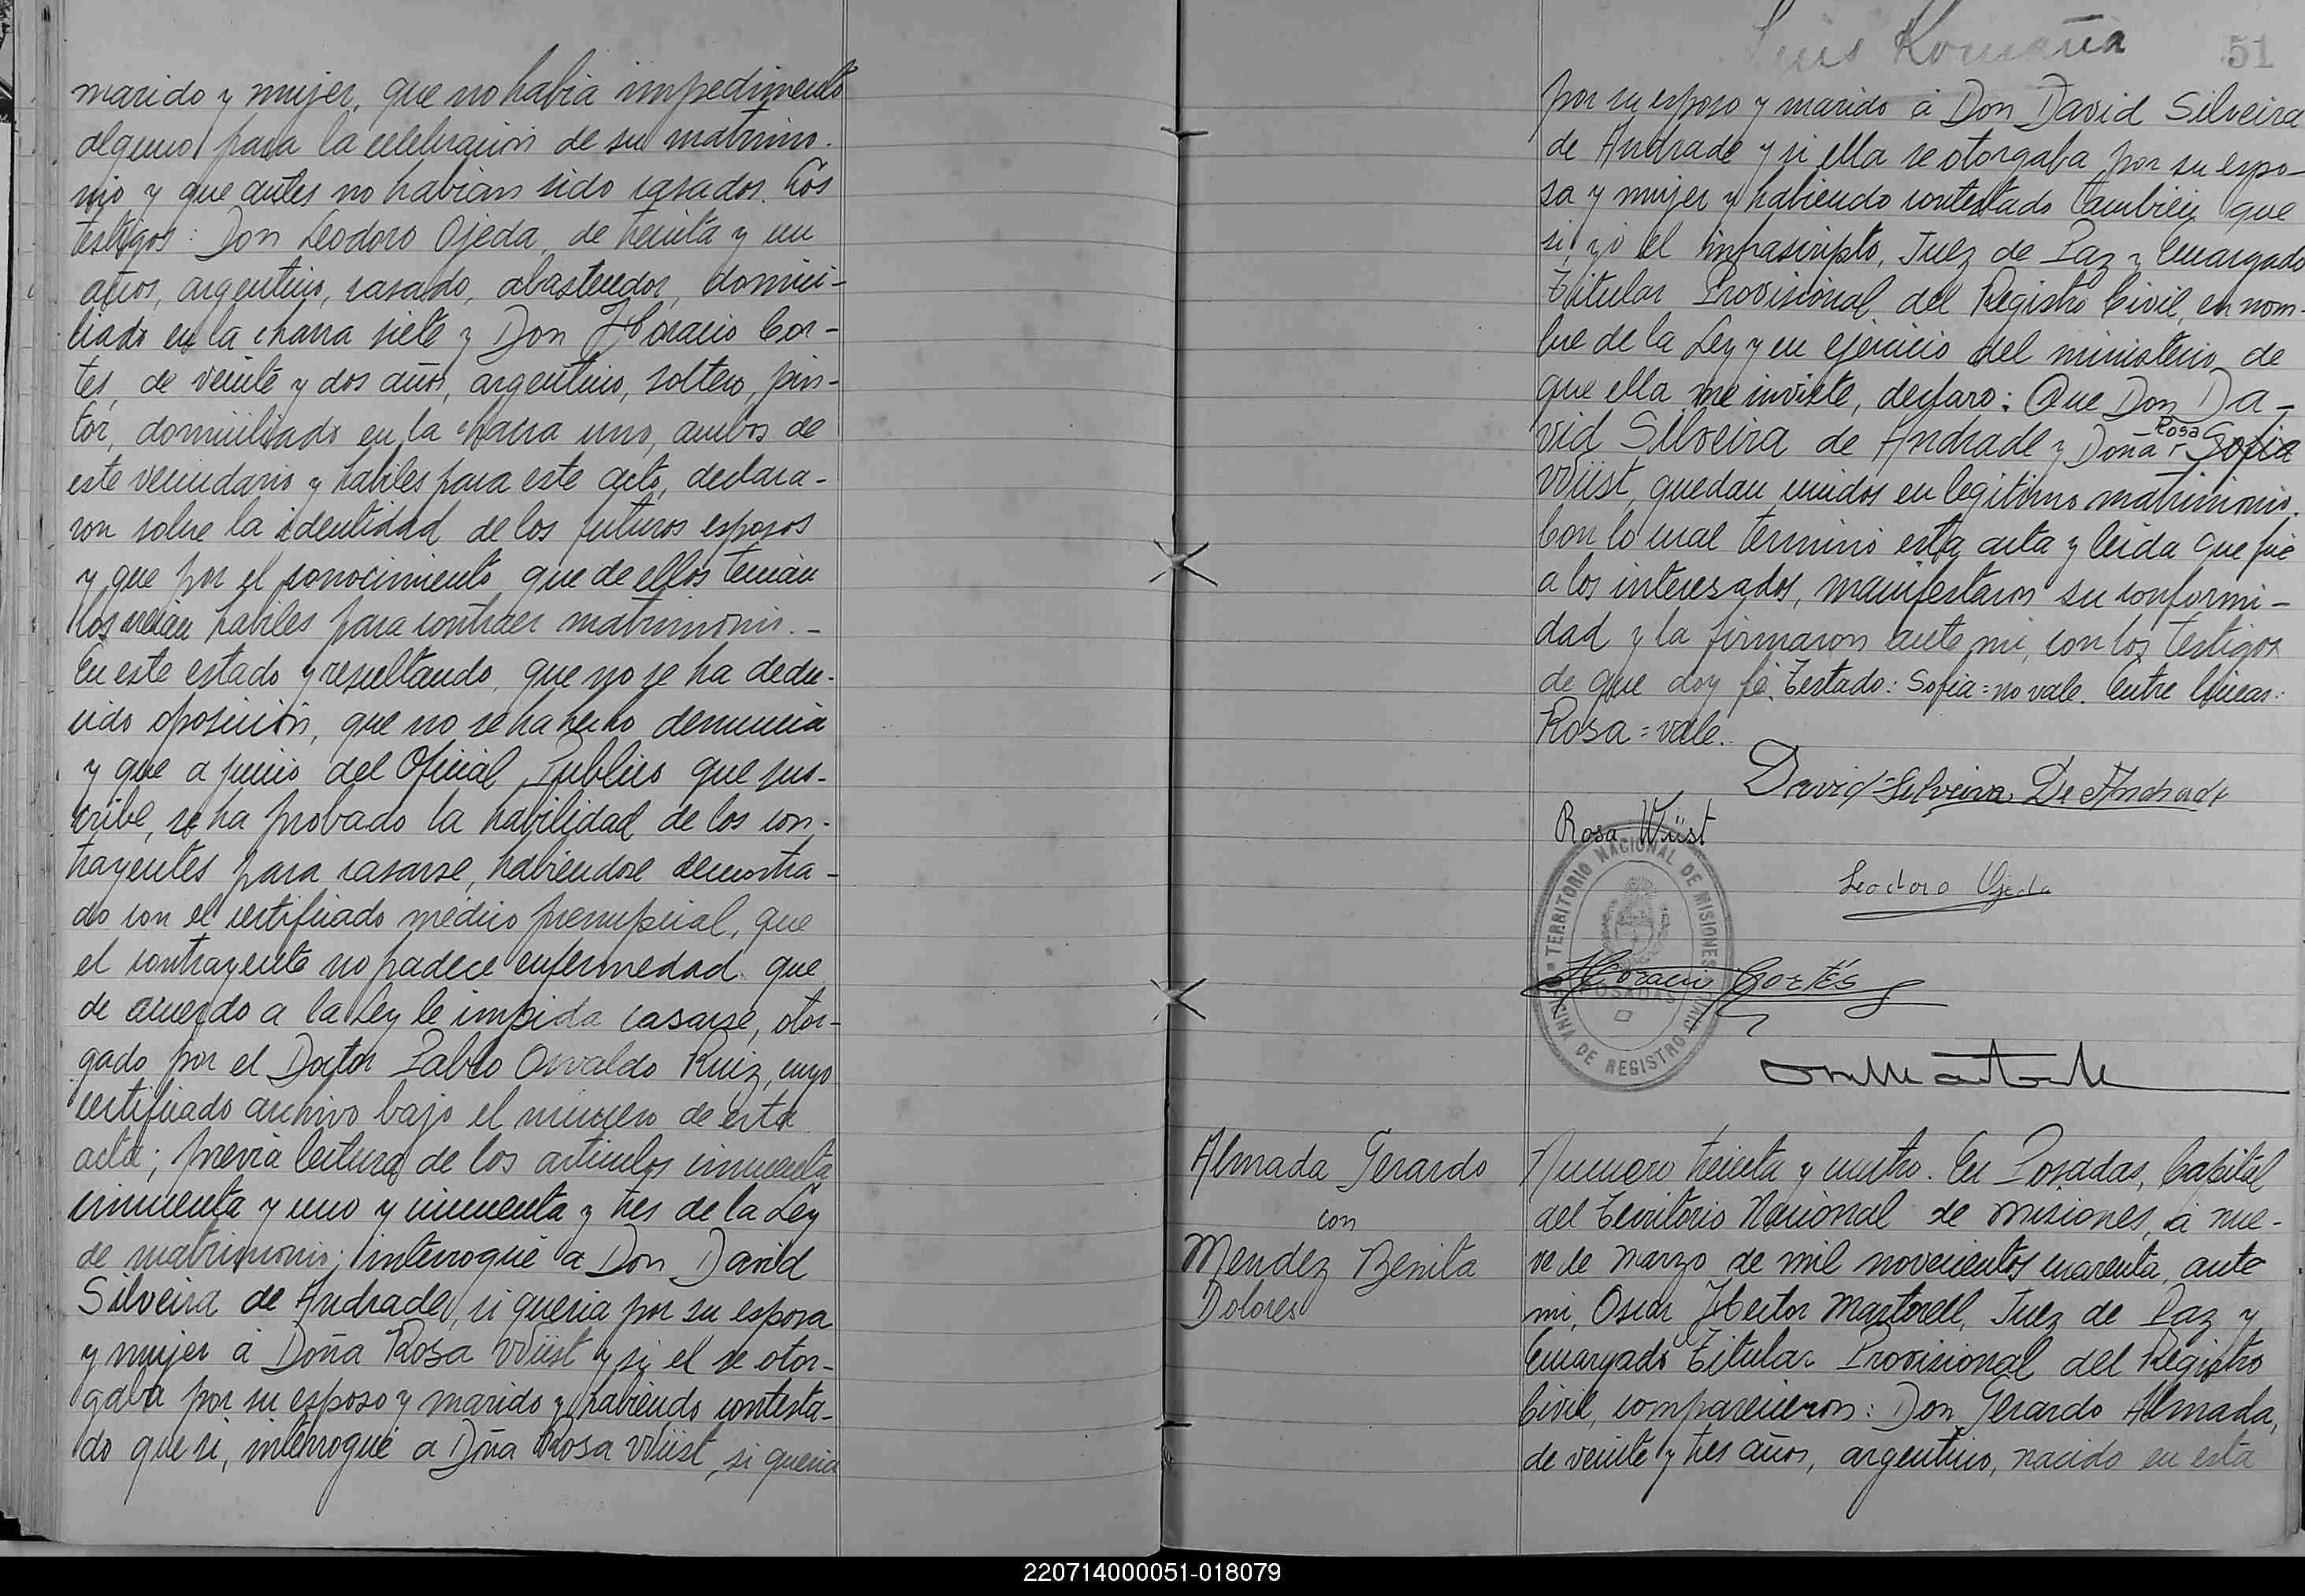 marido y mujer, que no habia impedimento
alguno para la celebracion de su matrimo-
nio y que antes no habian sido casados. Los
testigos: Don Leodoro Ojeda, de treinta y un
años, argentino, casado, abastecedor, domici-
liado en la chacra siete y Don Horacio Cor-
tes, de veinte y dos años, argentino, soltero, pin-
tor, domiciliado en la chacra uno, ambos de
este vecindario y habiles para este acto, declara-
ron sobre la identidad de los futuros esposos
y que por el conocimiento que de ellos tenian
los creian habiles para contraer matrimonio. -
En este estado y resultando, que no se ha dedu-
cido oposicion, que no se ha hecho denuncia
y que a juicio del Oficial Publico que sus-
cribe, se ha probado la habilidad de los con-
trayentes para casarse, habiendose demostra-
do con el certificado medico prenupcial, que
el contrayente no padece enfermedad que
de acuerdo a la Ley le impida casarse, otor-
gado por el Doctor Pablo Osvaldo Ruiz, cuyo
certificado archivo bajo el numero de esta
acta; previa lectura de los articulos cincuenta
cincuenta y uno y cincuenta y tres de la Ley
de matrimonio; interrogué a Don David
Silveira de Andrade, si queria por su esposa
y mujer á Doña Rosa Wüist y si el se otor-
gaba por su esposo y marido y habiendo contesta-
do que si, interrogué a Doña Rosa Wüist, si queria
Luis Romaña
51
por su esposo y marido á Don David Silveira
de Andrade y si ella se otorgaba por su espo-
sa y mujer y habiendo contestado tambien que
si, yo el infrascripto, Juez de Paz y Encargado
Titular Provisional del Registro Civil, en nom-
bre de la Ley y en ejercicio del ministerio de
que ella me inviste, declaro: Que Don Da-
vid Silveira de Andrade y Doña Rosa Sofia
Wüist, quedan unidos en legitimo matrimonio.
Con lo cual termino esta acta y leida que fue
a los interesados, manifestaron su conformi-
dad y la firmaron ante mi, con los testigos
de que doy fé. Testado: Sofia = no vale. Entre lineas:
Rosa = vale.
David Silveira De Andrade
Rosa Wüst
Leodoro Ojeda
Horacio Cortés
TERRITORIO NACIONAL DE MISIONES
POSADAS
OFICINA DE REGISTRO CIVIL
Almada Gerardo
con
Mendez Benita
Dolores
Numero treinta y cuatro. En Posadas, Capital
del Territorio Nacional de Misiones, á nue-
ve de Marzo de mil novecientos cuarenta, ante
mi, Oscar Hector Martorell, Juez de Paz y
Encargado Titular Provisional del Registro
Civil, comparecieron: Don Gerardo Almada,
de veinte y tres años, argentino, nacido en esta
220714000051-018079